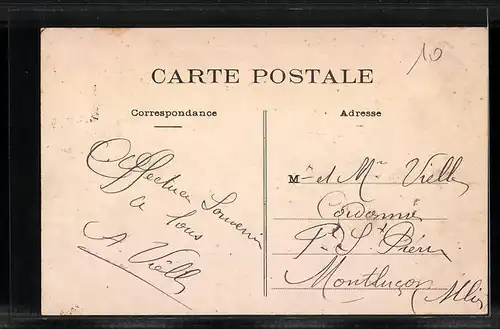 10
CARTE POSTALE
Correspondance
Adresse
Affectueux Souvenir
a tous
A. Vielle
Mr et Mme Vielle
Cordonnier
St Pierre
Montluçon Allier